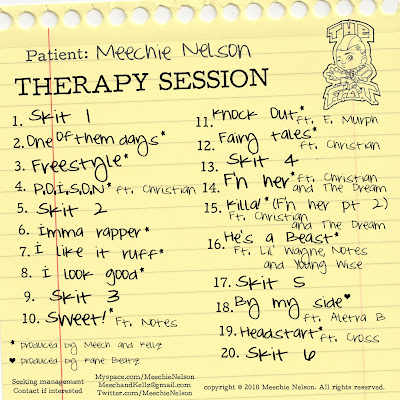 Patient: Meechie Nelson
THERAPY SESSION
THE
1. Skit 1
2. One of them days*
3. Freestyle*
4. P.O.I.S.O.N* ft. Christian
5. Skit 2
6. imma rapper*
7. i like it ruff*
8. i look good*
9. Skit 3
10. Sweet!* Ft. Notes
11. Knock Out* ft. E. Murph
12. Fairy tales*
ft. Christian
13. Skit 4
14. F'n her* ft. Christian
and The Dream
15. Killa!* (F'n her pt 2)
ft. Christian
and The Dream
16. He's a Beast*
ft. Lil' Wayne, Notes
and Young Wise
17. Skit 5
18. By my side♥
ft. Aletra B
19. Headstart* ft. Cross
20. Skit 6
* produced by Meech and Kellz
♥ produced by Kane Beatz
Seeking management
Contact if interested
Myspace.com/MeechieNelson
MeechandKellz@gmail.com
Twitter.com/MeechieNelson
copyright © 2010 Meechie Nelson. All rights reserved.